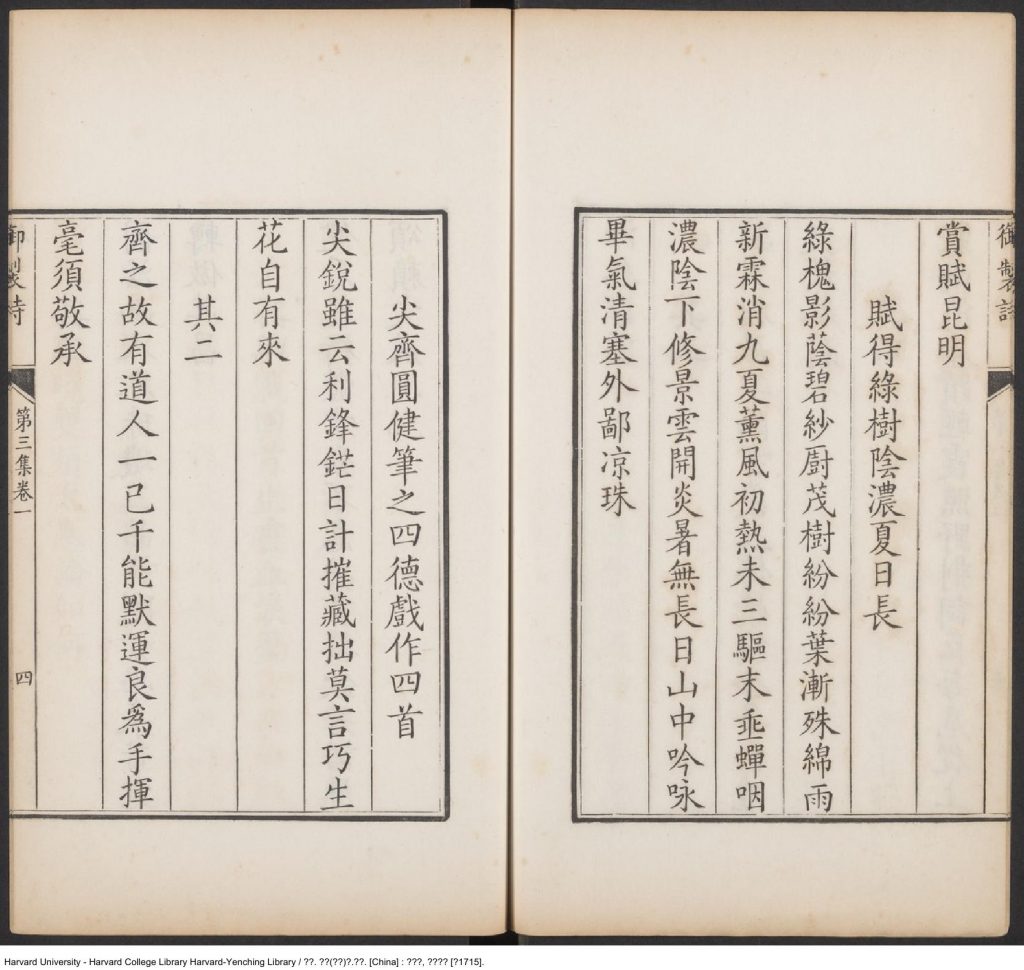 御製詩
賞賦昆明
賦得綠樹陰濃夏日長
綠槐影蔭碧紗廚茂樹紛紛葉漸殊綿雨
新霖消九夏薰風初熱未三驅末垂蟬咽
濃陰下修景雲開炎暑無長日山中吟咏
畢氣清塞外鄙凉珠
尖齊圓健筆之四德戲作四首
尖銳雖云利鋒鋩日計摧藏拙莫言巧生
花自有來
其二
齊之故有道人一已千能默運良爲手揮
毫須敬承
御製詩
第三集卷一
四
Harvard University - Harvard College Library Harvard-Yenching Library / ??. ??(??)?.??. [China] : ???, ???? [?1715].